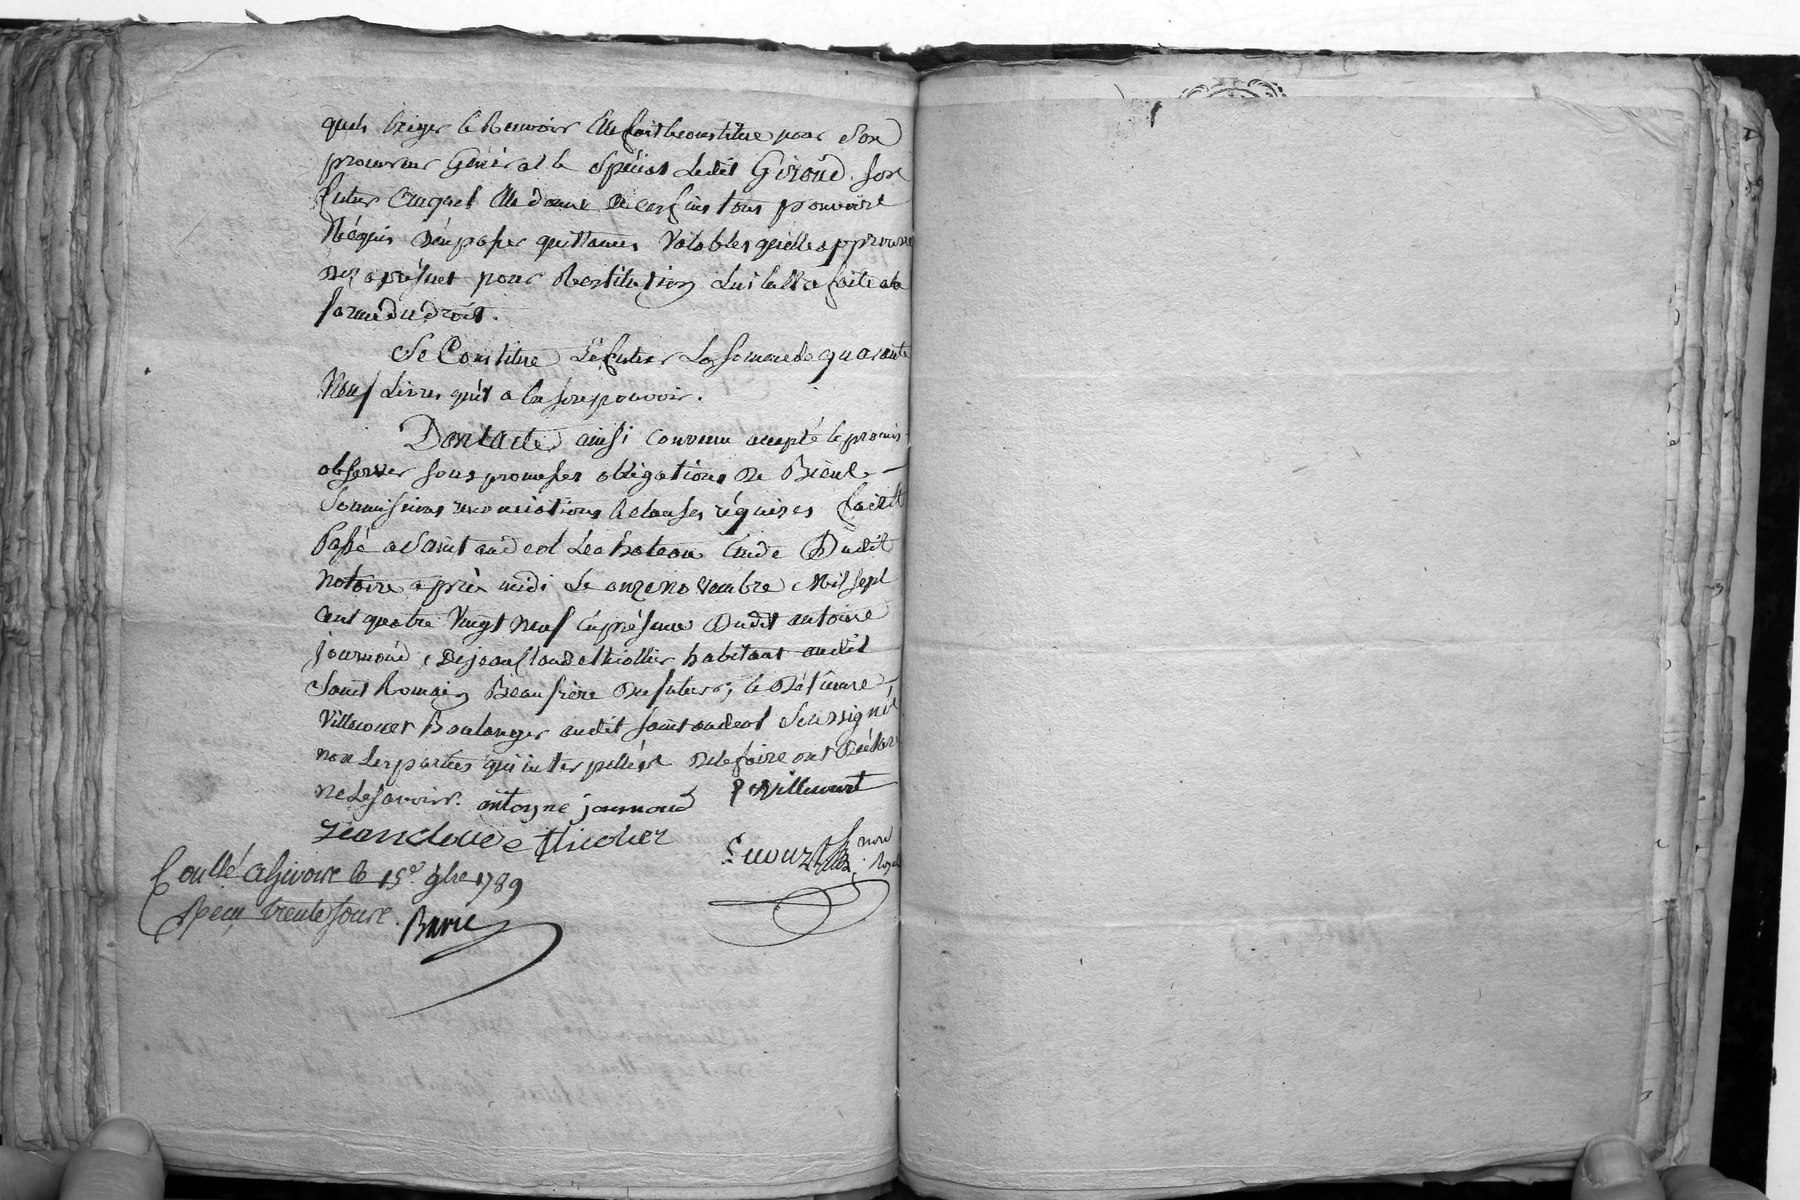 quels Exiger et Recevoir elle fait et constitue pour Son
procureur Général et Spécial Ledit Giroud Son
futur Auquel elle donne a ces fins tous pouvoirs
Réquis d'en passer quittances Valables qu'elle approuve
dez aprésent pour Restitution Lui en a faite a la
forme du droit.
Se Constitue Le futur La Somme de quarante
Neuf Livres qu'il a en Son pouvoir.
Dont acte ainsi convenu accepté et promis
observer Sous promesses obligations de Biens
Soumissions renonciations et clauses réquises fait et
Passé a Saint andeol Le chateau Etude Dudit
Notaire après midi Le onze novembre Mil Sept
cent quatre Vingt Neuf En présence Dudit antoine
journoud, De jean Claude thiollier habitant audit
Saint Romain Beaufrère du futur, et d'étienne
Villecourt Boulanger audit Saint andeol Soussignés
non Les parties qui interpellées de le faire ont Déclaré
ne Le Savoir. antoyne journoud E Villecourt
jean cloude thiolier
not. Royal
Conllé a Givors le 15e. 9bre 1789
Reçu trente Sous.